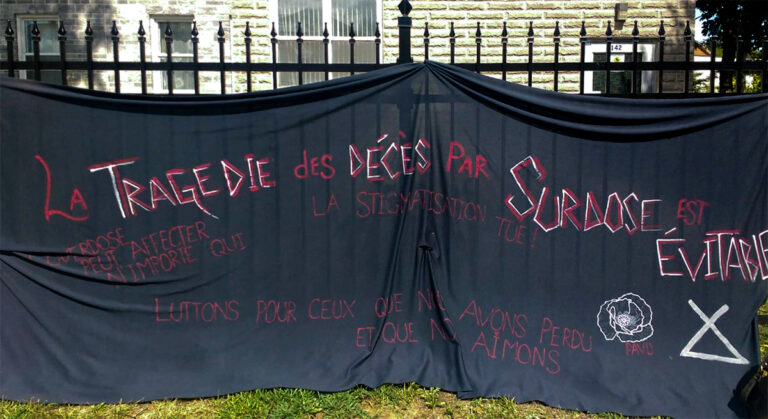 142
La TRAGEDIE des DÉCÈS PAR SURDOSE EST ÉVITABLE
LA STIGMATISATION TUE!
OVERDOSE
PEUT AFFECTER
N'IMPORTE QUI
LUTTONS POUR CEUX QUE AVONS PERDU
ET QUE AIMONS